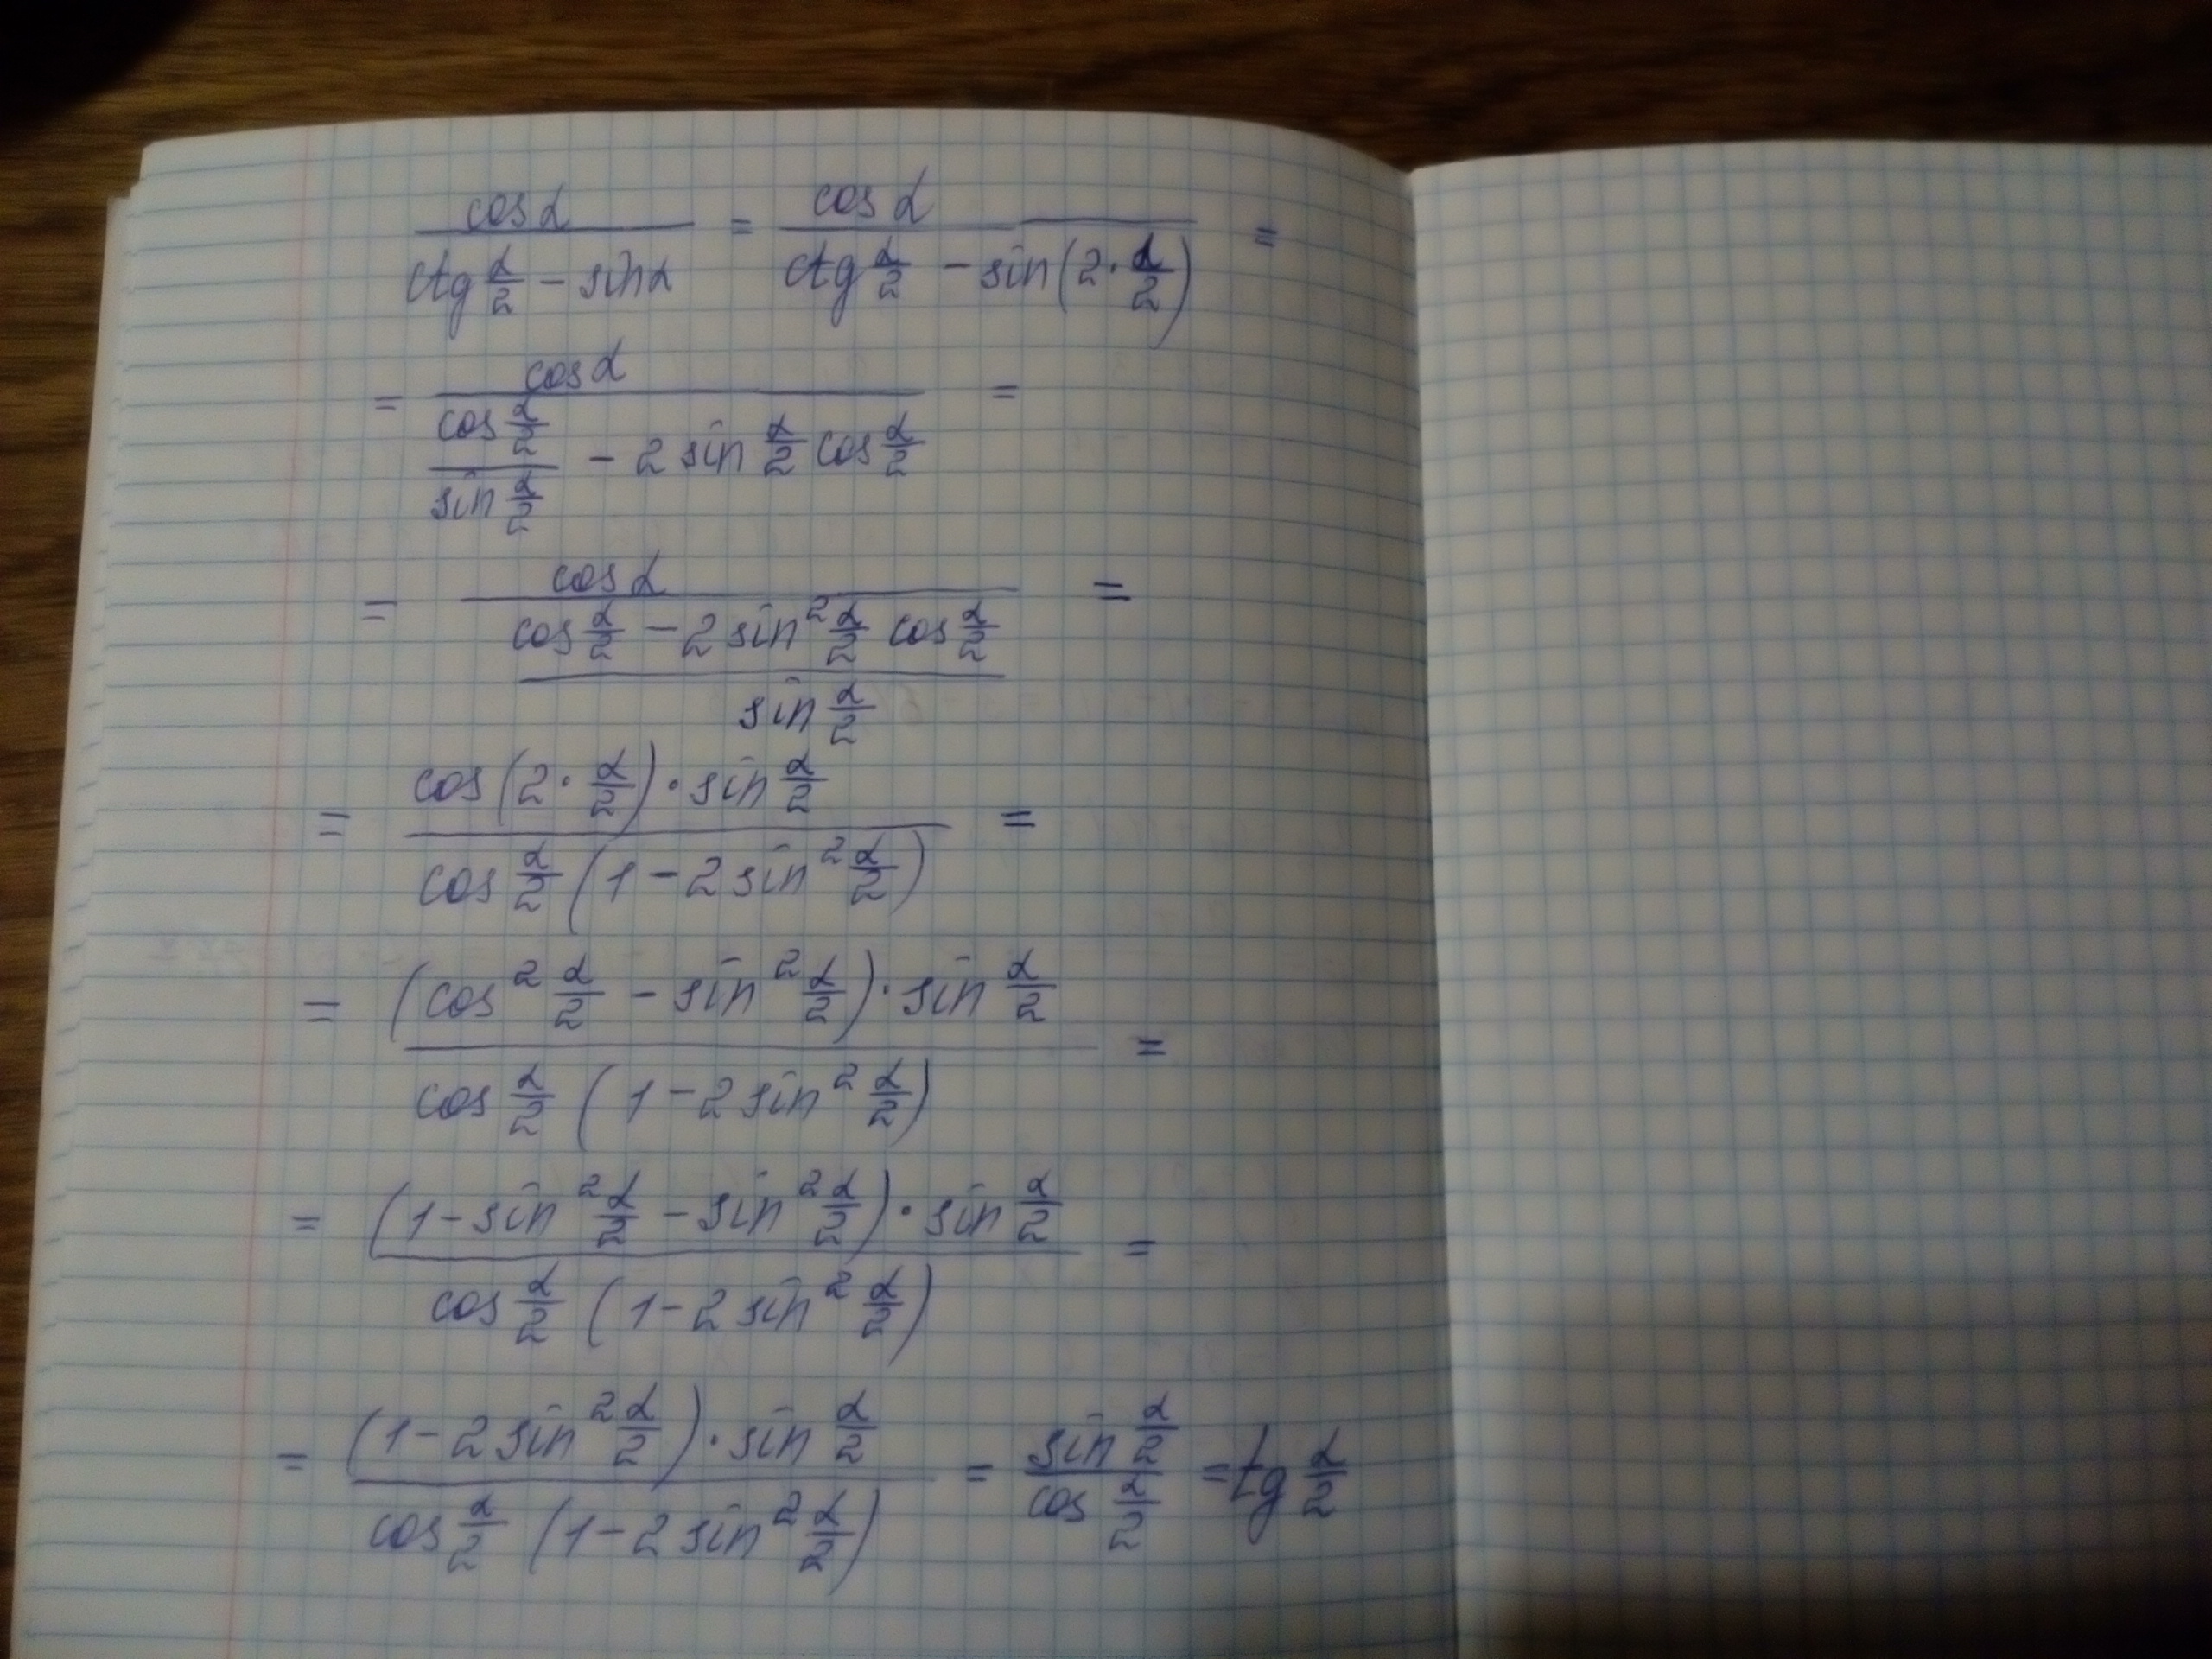 cos α / (ctg α/2 − sin α) = cos α / (ctg α/2 − sin(2·α/2)) =
= cos α / ((cos α/2)/(sin α/2) − 2 sin α/2 cos α/2) =
= cos α / ((cos α/2 − 2 sin² α/2 cos α/2) / (sin α/2)) =
= (cos(2·α/2)·sin α/2) / (cos α/2 (1 − 2 sin² α/2)) =
= ((cos² α/2 − sin² α/2)·sin α/2) / (cos α/2 (1 − 2 sin² α/2)) =
= ((1 − sin² α/2 − sin² α/2)·sin α/2) / (cos α/2 (1 − 2 sin² α/2)) =
= ((1 − 2 sin² α/2)·sin α/2) / (cos α/2 (1 − 2 sin² α/2)) = (sin α/2) / (cos α/2) = tg α/2